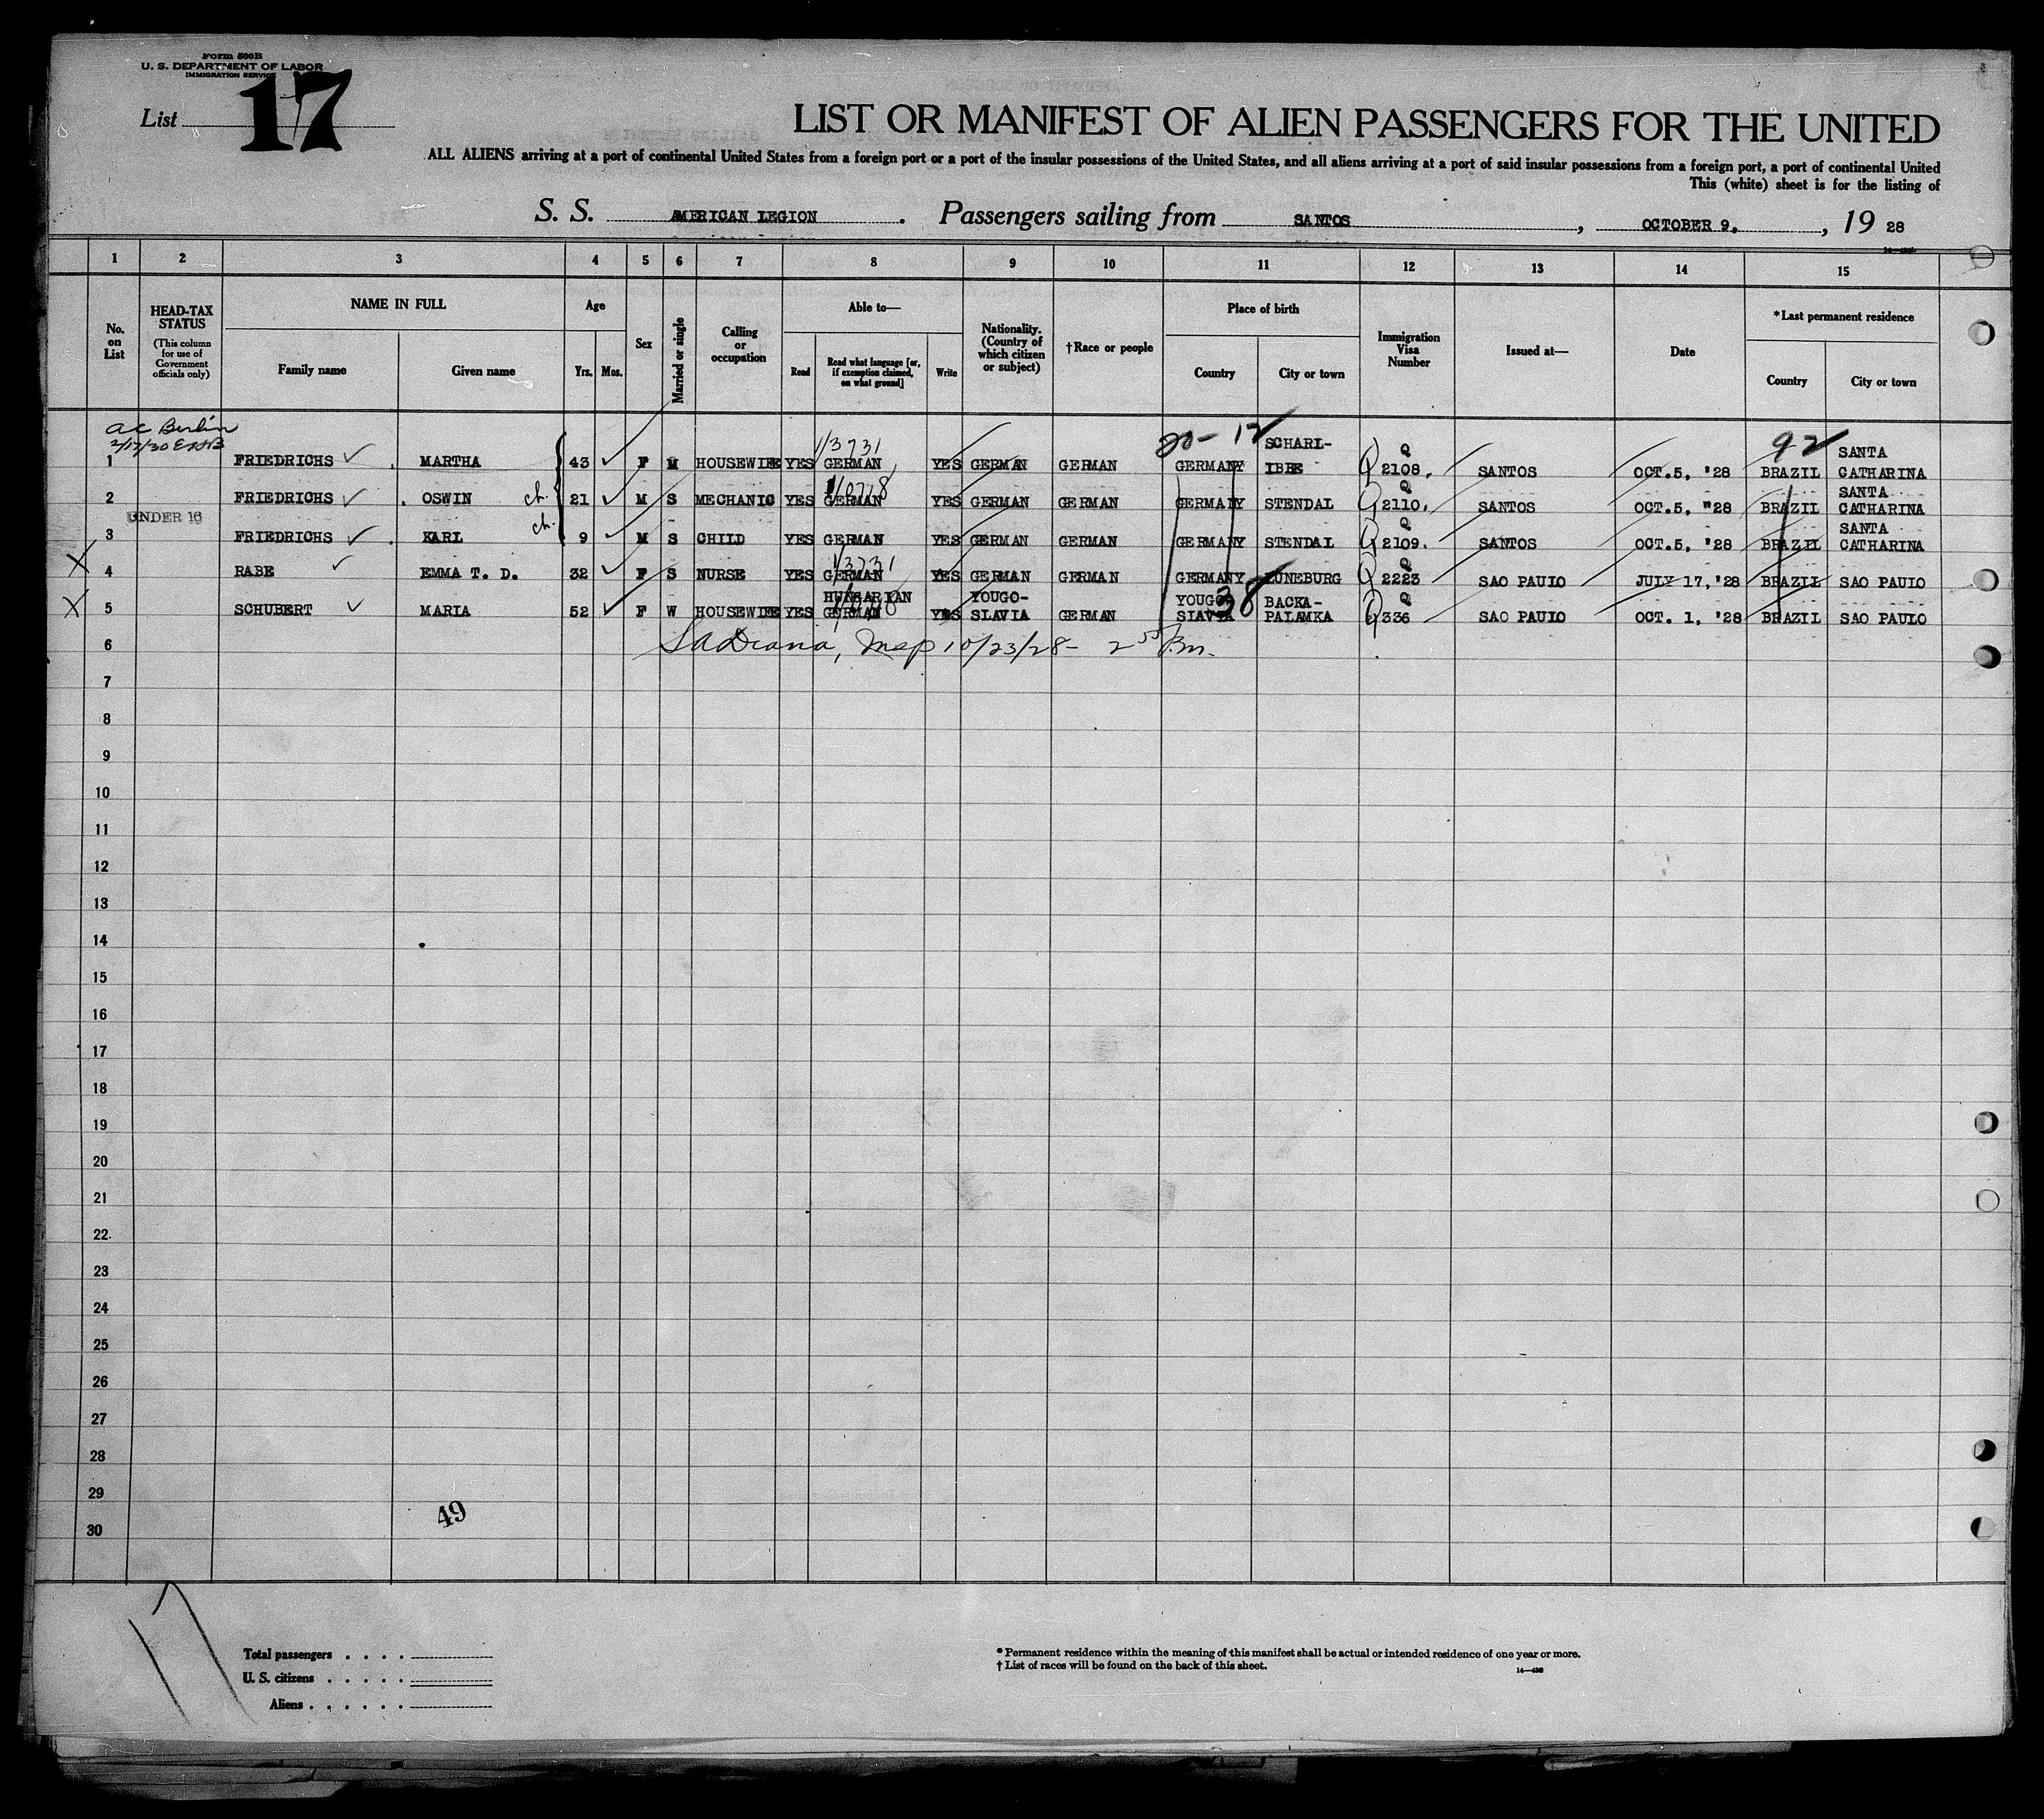 Form 500B
U. S. DEPARTMENT OF LABOR
IMMIGRATION SERVICE
List 17
LIST OR MANIFEST OF ALIEN PASSENGERS FOR THE UNITED
ALL ALIENS arriving at a port of continental United States from a foreign port or a port of the insular possessions of the United States, and all aliens arriving at a port of said insular possessions from a foreign port, a port of continental United
This (white) sheet is for the listing of
S. S. AMERICAN LEGION. Passengers sailing from SANTOS, OCTOBER 9, 1928
1 2 3 4 5 6 7 8 9 10 11 12 13 14 15
No. on List
HEAD-TAX STATUS (This column for use of Government officials only)
NAME IN FULL
Family name Given name
Age
Yrs. Mos.
Sex
Married or single
Calling or occupation
Able to—
Read
Read what language [or, if exemption claimed, on what ground]
Write
Nationality. (Country of which citizen or subject)
†Race or people
Place of birth
Country City or town
Immigration Visa Number
Issued at—
Date
*Last permanent residence
Country City or town
ac Berlin
2/17/30
1 FRIEDRICHS MARTHA 43 F M HOUSEWIFE YES GERMAN YES GERMAN GERMAN GERMANY SCHARL-IBBE Q 2108. SANTOS OCT.5, '28 BRAZIL SANTA CATHARINA
1/3731
20-12
92
2 FRIEDRICHS OSWIN ch. 21 M S MECHANIC YES GERMAN YES GERMAN GERMAN GERMANY STENDAL Q 2110. SANTOS OCT.5, "28 BRAZIL SANTA CATHARINA
UNDER 16
3 FRIEDRICHS KARL ch. 9 M S CHILD YES GERMAN YES GERMAN GERMAN GERMANY STENDAL Q 2109. SANTOS OCT.5, '28 BRAZIL SANTA CATHARINA
X 4 RABE EMMA T. D. 32 F S NURSE YES GERMAN YES GERMAN GERMAN GERMANY LUNEBURG Q 2223 SAO PAULO JULY 17,'28 BRAZIL SAO PAULO
1/3731
X 5 SCHUBERT MARIA 52 F W HOUSEWIFE YES HUNGARIAN GERMAN YES YOUGO-SLAVIA GERMAN YOUGO-SLAVIA BACKA-PALANKA Q 336 SAO PAULO OCT. 1, '28 BRAZIL SAO PAULO
38
10/23/28- 2 55 P.m.
6
7
8
9
10
11
12
13
14
15
16
17
18
19
20
21
22
23
24
25
26
27
28
29
30
49
17
Total passengers
U. S. citizens
Aliens
* Permanent residence within the meaning of this manifest shall be actual or intended residence of one year or more.
† List of races will be found on the back of this sheet.